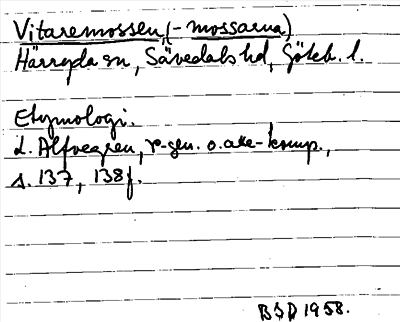 Vitaremossen (-mossarna)
Härryda sn, Sävedals hd, Göteb. l.
Etymologi.
L. Alfvegren, r-gen. o. are-komp.,
s. 137, 138f.
BSD 1958.